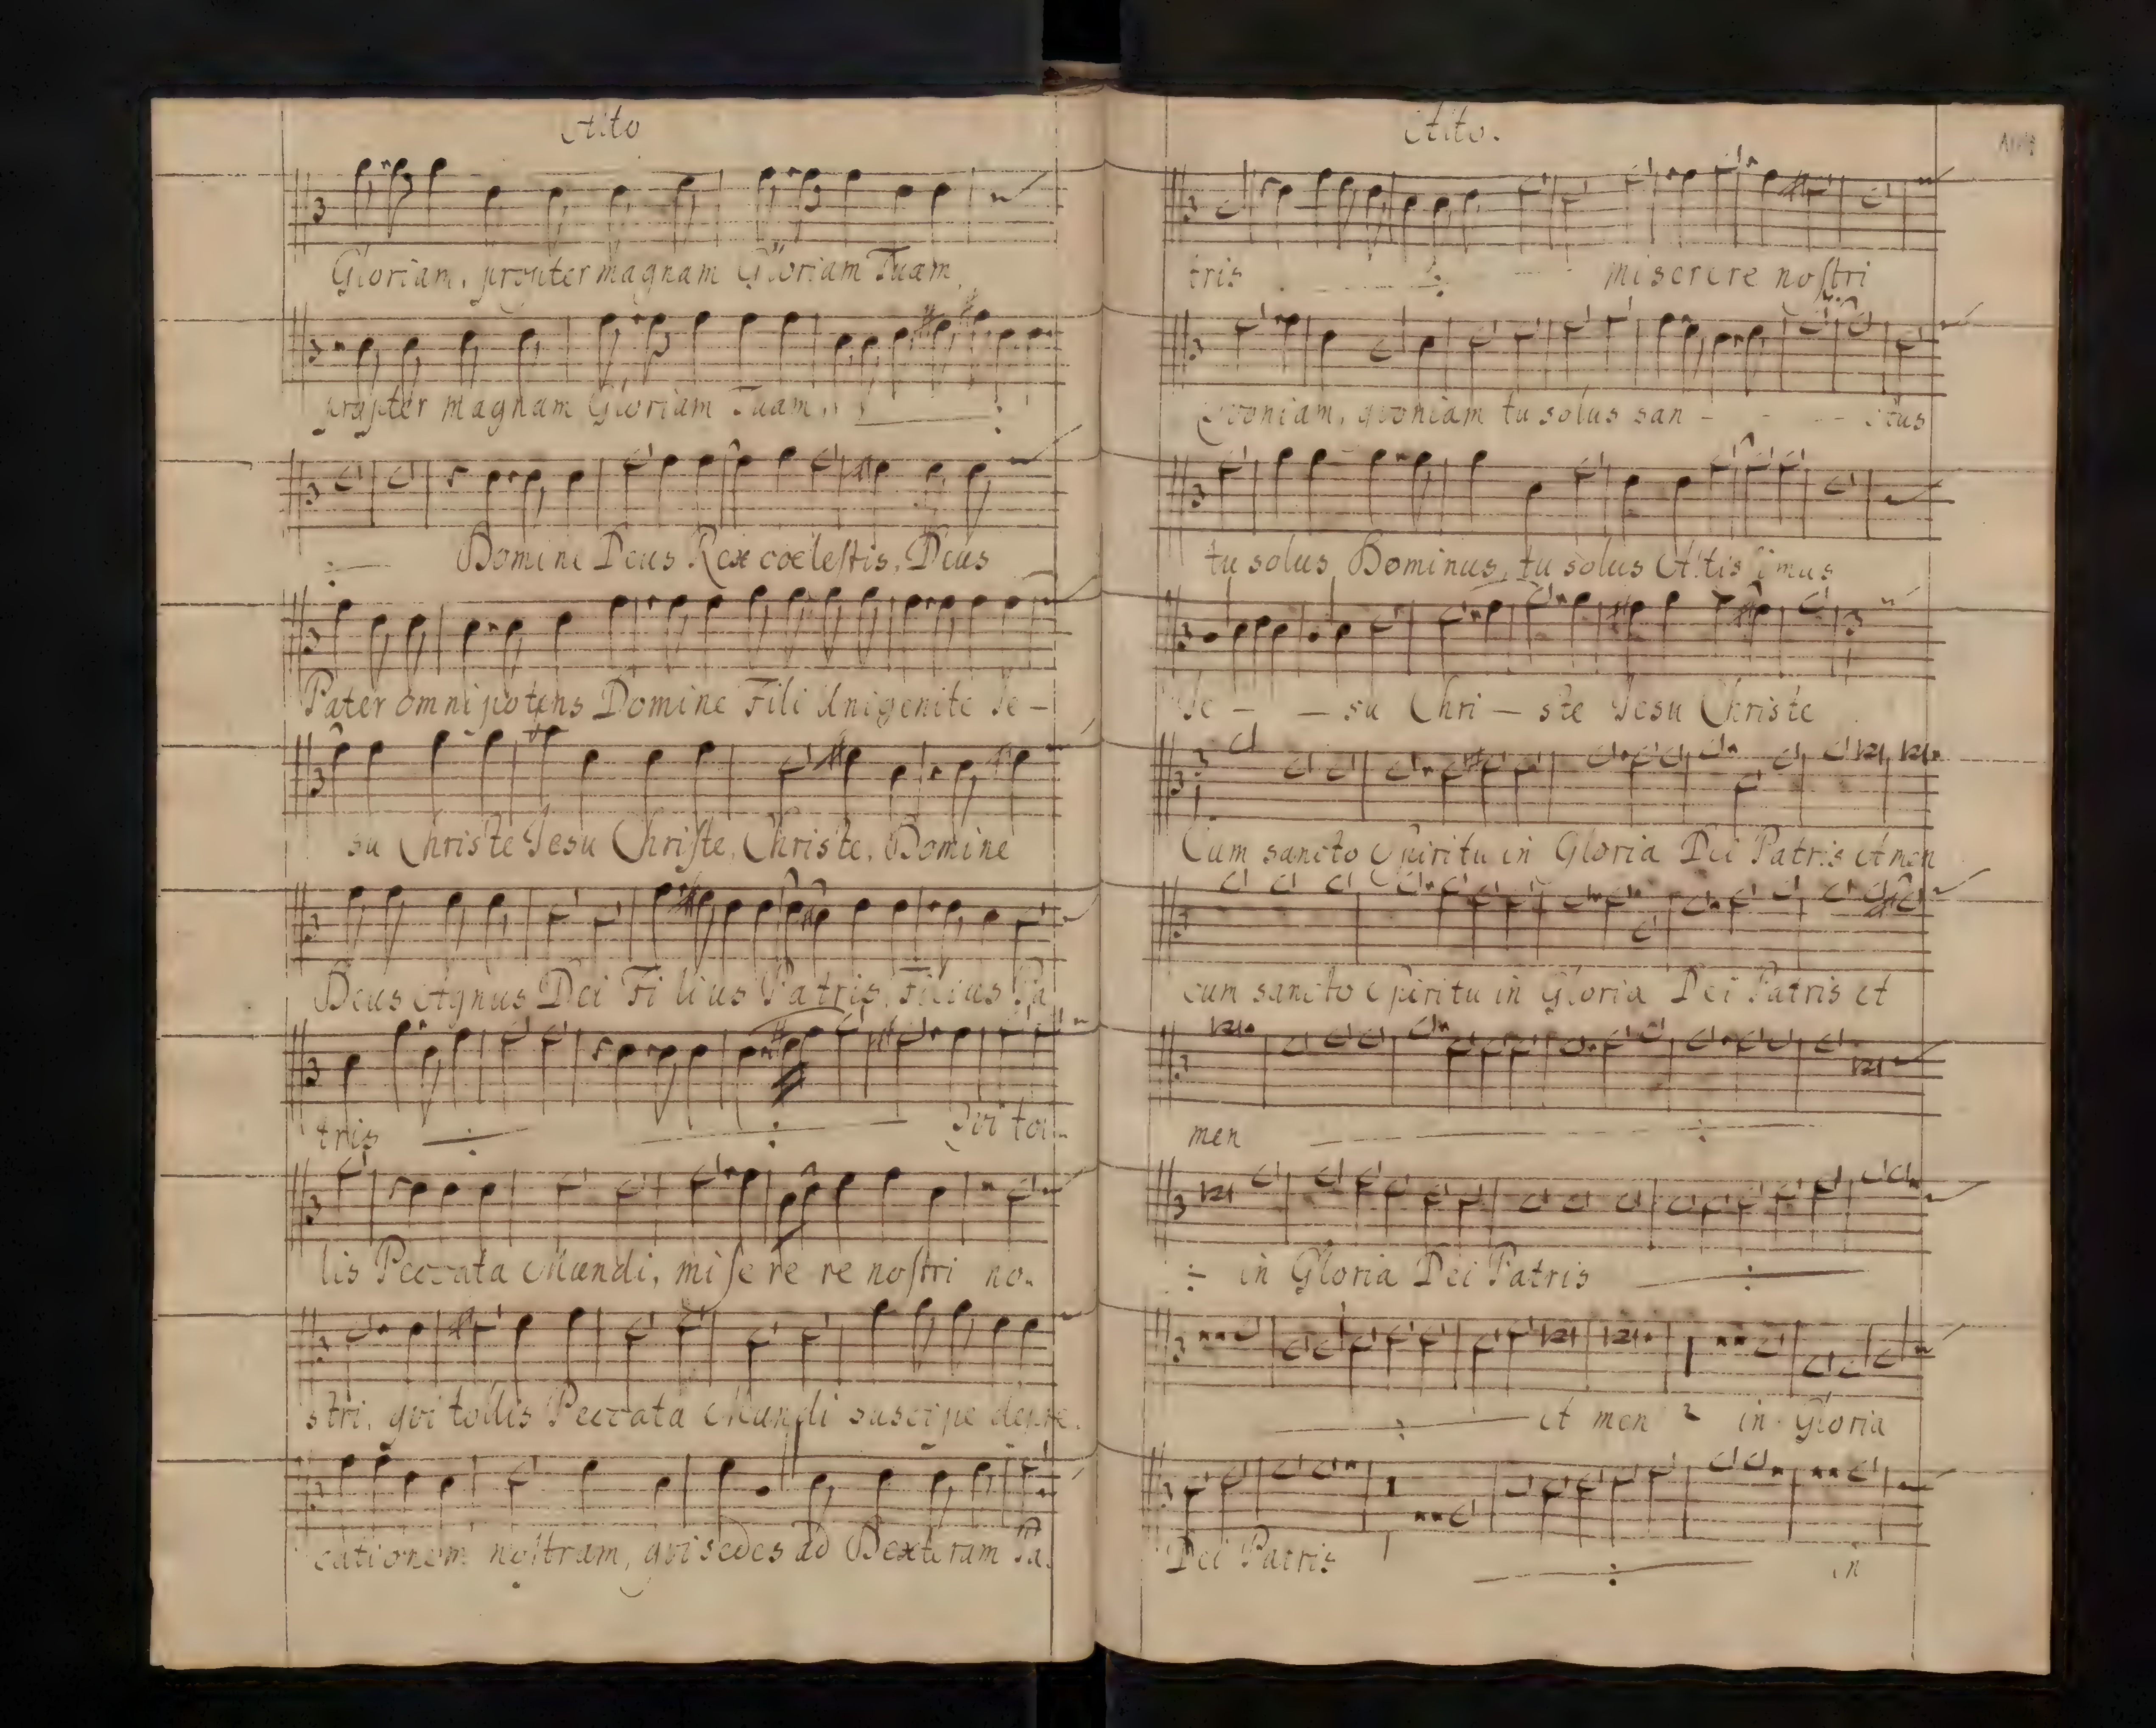 Alto
Gloriam, propter magnam Gloriam Tuam,
propter magnam Gloriam Tuam,
Domine Deus Rex coelestis, Deus
Pater omnipotens Domine Fili Unigenite Je-
su Christe Jesu Christe, Christe, Domine
Deus Agnus Dei Filius Patris, Filius Pa
tris Qvi tol-
lis Peccata Mundi, miserere nostri no-
stri, qvi tollis Peccata Mundi suscipe depre-
cationem nostram, qvi sedes ad Dexteram Pa-
Alto.
tris miserere nostri
Qvoniam, qvoniam tu solus san - - - ctus
tu solus Dominus, tu solus Altissimus
Je - - su Chri - ste Jesu Christe
Cum sancto Spiritu in Gloria Dei Patris Amen
cum sancto Spiritu in Gloria Dei Patris A
men
in Gloria Dei Patris
A men in Gloria
Dei Patris in